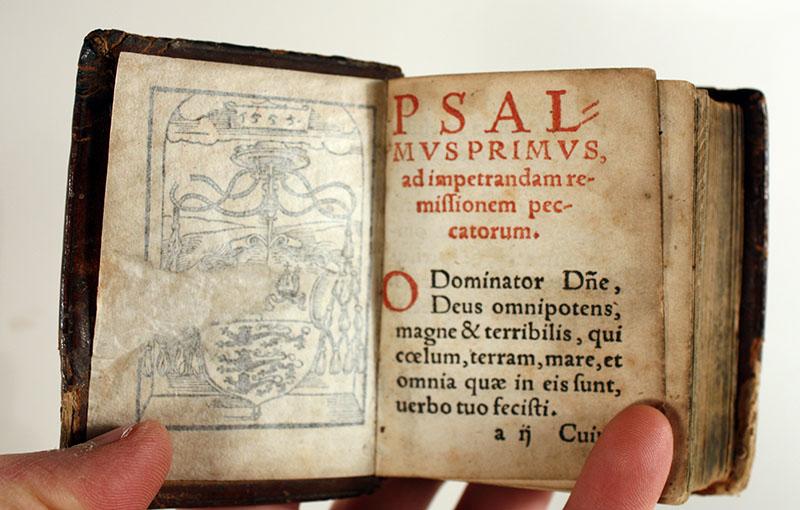 PSAL=
MVS PRIMVS,
ad impetrandam re-
miſſionem pec-
catorum.
O Dominator Dñe,
Deus omnipotens,
magne & terribilis, qui
cœlum, terram, mare, et
omnia quæ in eis ſunt,
uerbo tuo feciſti.
a ij Cui